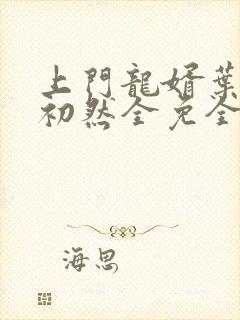 上門龍婿葉
初然全免全
海思